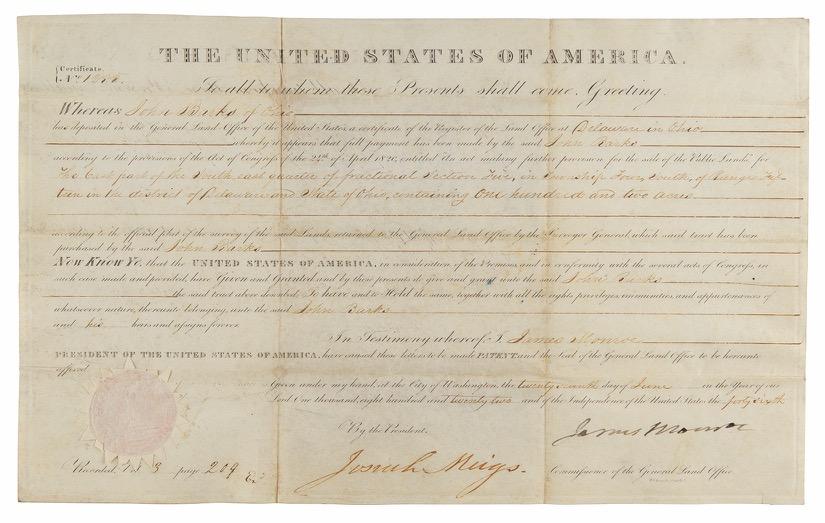 THE UNITED STATES OF AMERICA.
Certificate.
No.
To all to whom these Presents shall come, Greeting.
Whereas John Barks of Ohio
has deposited in the General Land Office of the United States, a certificate of the Register of the Land Office at Delaware in Ohio
whereby it appears that full payment has been made by the said John Barks
according to the provisions of the Act of Congress of the 24th of April 1820, entitled An act making further provision for the sale of the Public Lands for
The East part of the South east quarter of fractional Section Five, in Township Four, South, of Range Fif-
teen in the district of Delaware and State of Ohio, containing One hundred and two acres
according to the official plat of the survey of the said Lands, returned to the General Land Office by the Surveyor General, which said tract has been
purchased by the said John Barks
Now Know Ye, that the UNITED STATES OF AMERICA, in consideration of the Premises, and in conformity with the several acts of Congress, in
such case made and provided, have Given and Granted and by these presents do give and grant unto the said John Barks
the said tract above described: To have and to Hold the same, together with all the rights, privileges, immunities, and appurtenances of
whatsoever nature, thereunto belonging, unto the said John Barks
and his heirs and assigns forever.
In Testimony whereof, I, James Monroe
PRESIDENT OF THE UNITED STATES OF AMERICA, have caused these letters to be made PATENT, and the Seal of the General Land Office to be hereunto
affixed.
Given under my hand, at the City of Washington, the twenty day of June in the Year of our
Lord One thousand, eight hundred and twenty two and of the Independence of the United States the forty sixth
By the President.
James Monroe
Josiah Meigs.
Commissioner of the General Land Office.
Recorded, Vol 3 page 209